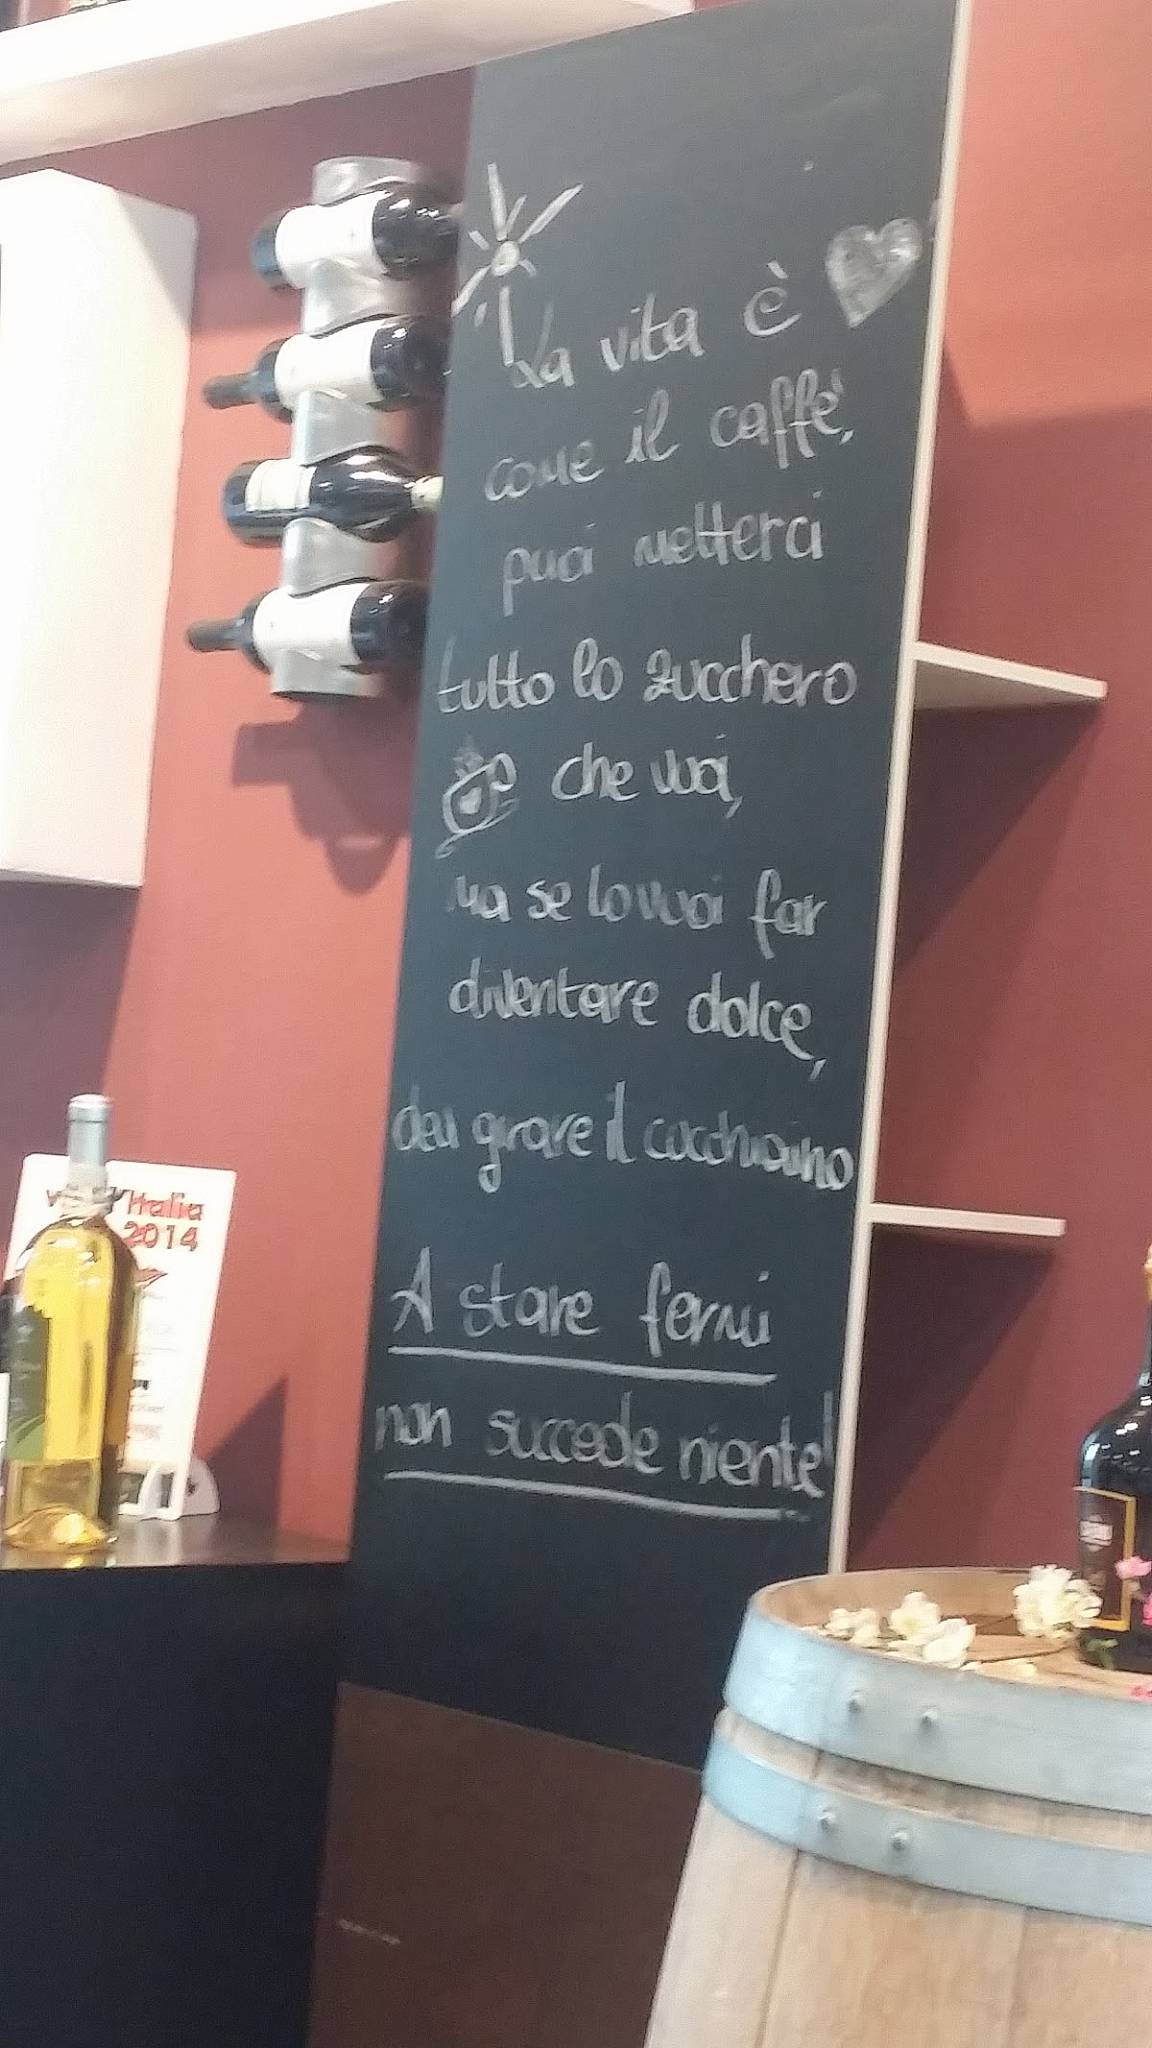 La vita è
come il caffè,
puoi metterci
tutto lo zucchero
che vuoi,
ma se lo vuoi far
diventare dolce,
devi girare il cucchiaino
A stare fermi
non succede niente!
d'Italia
2014